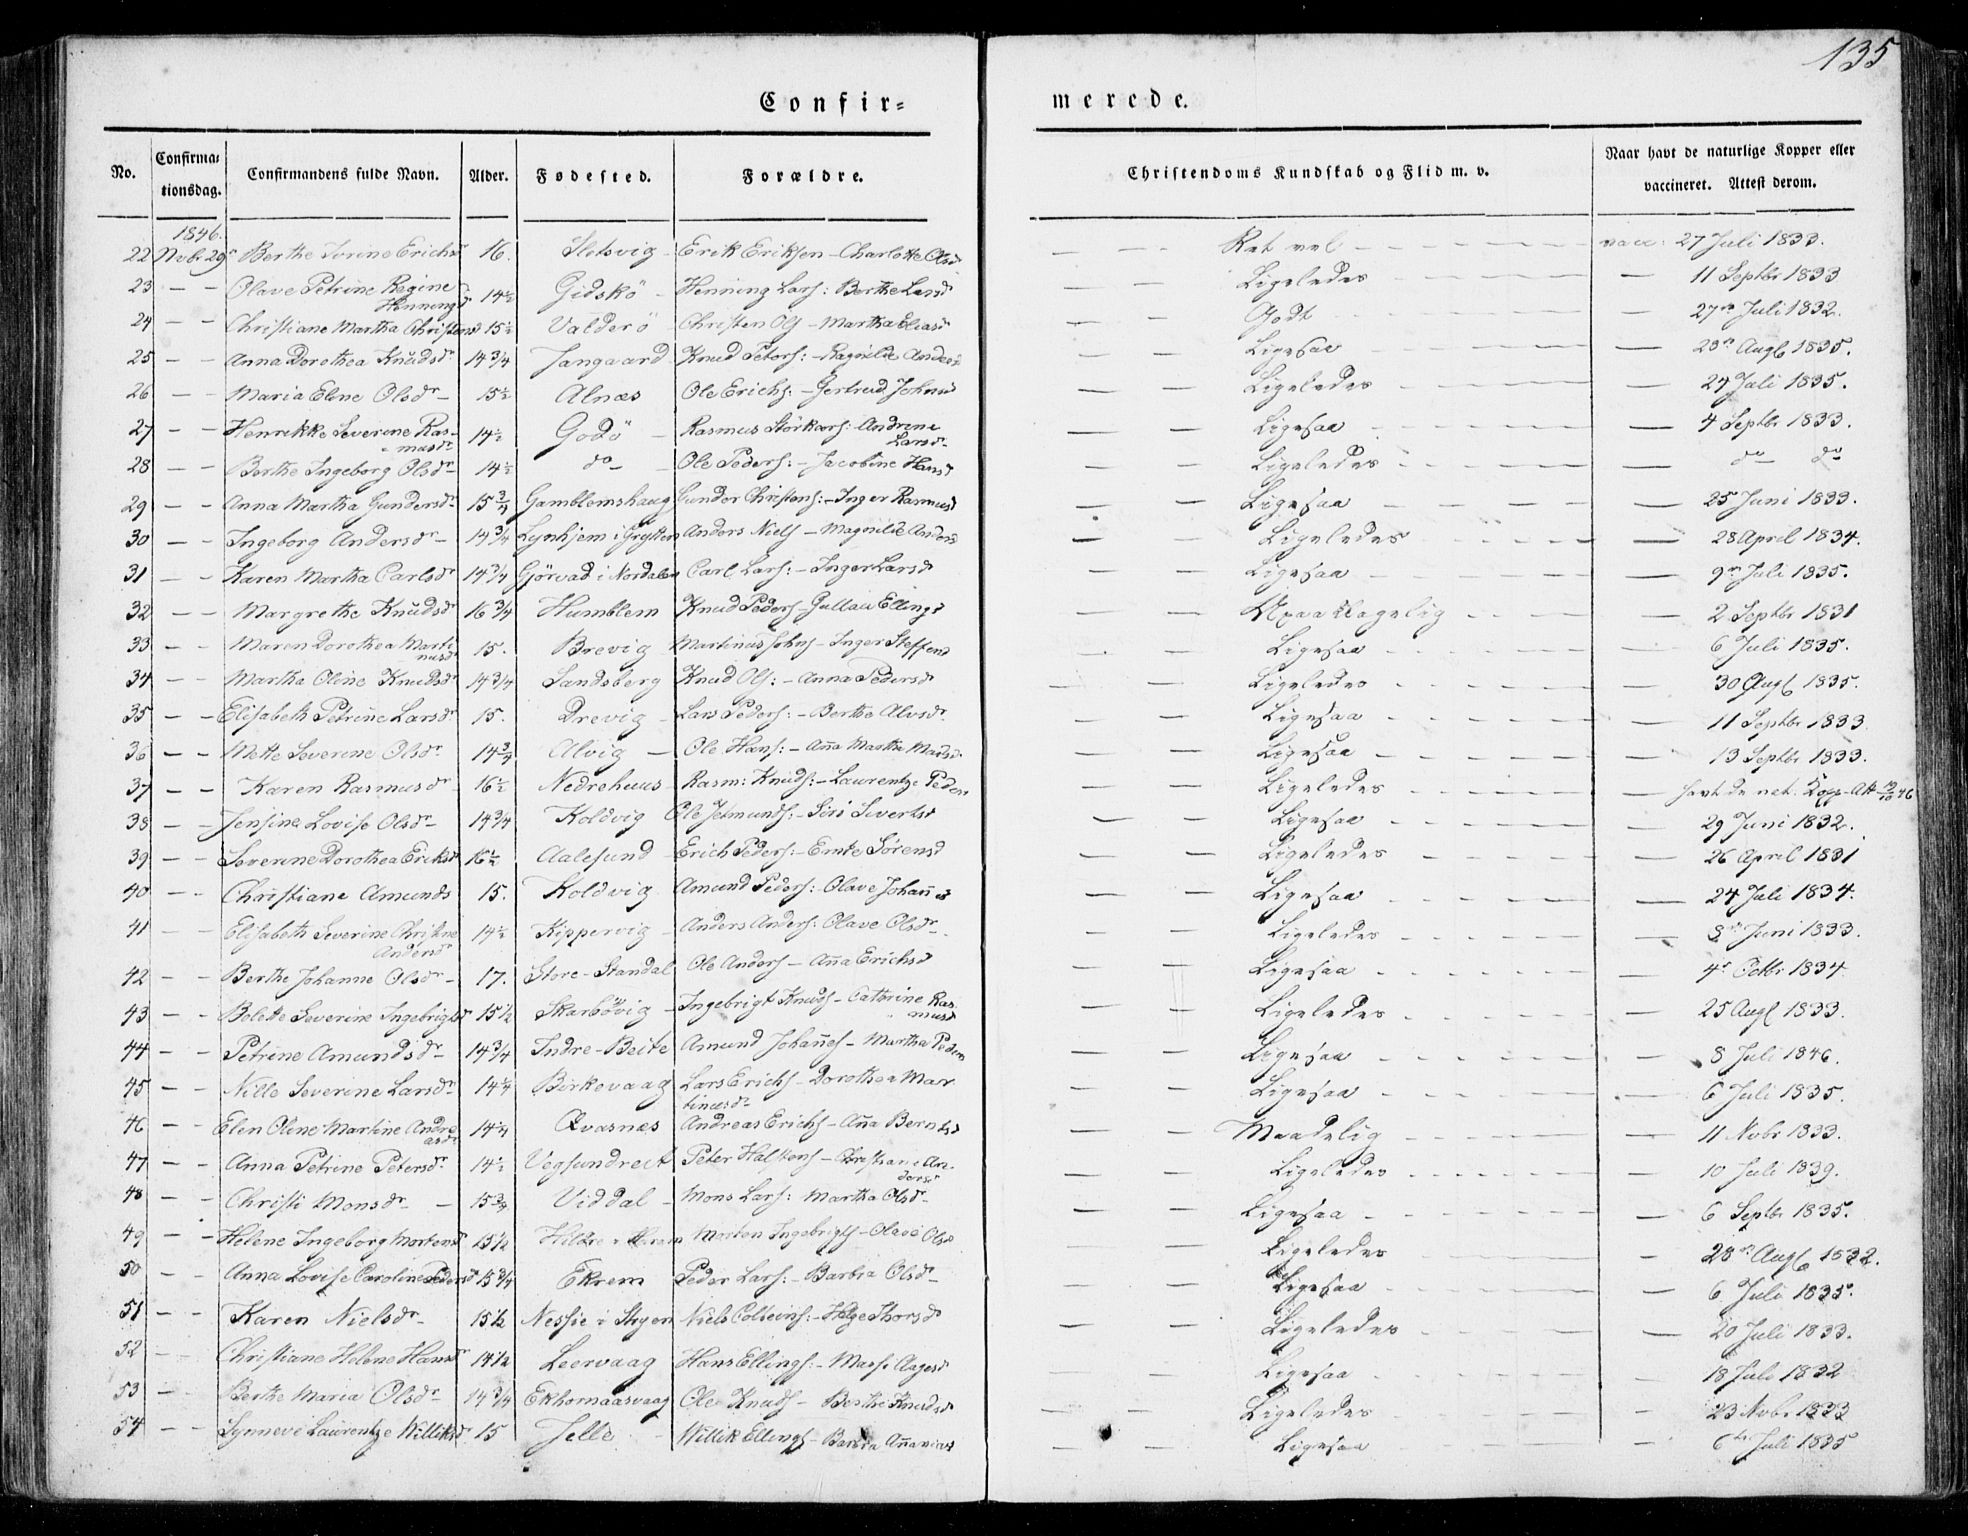 135
Confir= merede.
No. Confirma= tionsdag. Confirmandens fulde Navn. Alder. Fødested. Forældre. Christendoms Kundskab og Flid m. v. Naar havt de naturlige Kopper eller vaccineret. Attest derom.
1846.
22 Nvbr 29 Berthe Ivrine Erichsdr 16. Sletsvig Erik Eriksen - Charlotte Olsdr Ret vel vacc: 27 Juli 1833.
23 - - Olave Petrine Regine Henningsdr 14½ Gidskö Henning Lars: Berthe Larsdr Ligeledes 11 Septbr 1833
24 - - Christiane Martha Christensdr 15½ Valderö Christen Ols - Martha Eliasdr Godt 27de Juli 1832.
25 - - Anna Dorothea Knudsdr 14 3/4 Jangaard Knud Peters: - Ragnilde Andersdr Ligesaa 23de Augs 1835.
26 - - Maria Elene Olsdr 15½ Alnæs Ole Erichs: - Gertrud Johnsdr Ligeledes 24 Juli 1835.
27 - - Henrikke Severine Rasmusdr 14½ Godö Rasmus Störkars: Andrine Larsdr Ligesaa 4 Septbr 1833.
28 - - Berthe Ingeborg Olsdr 14½ do Ole Peders: - Jacobine Hansdr Ligeledes do do
29 - - Anna Martha Gundersdr 15 3/4 Gamblemshaug Gunder Christens: - Inger Rasmusdr Ligesaa 25 Juni 1833.
30 - - Ingeborg Andersdr 14 3/4 Lynhjem i Grytten Anders Niels - Magnilde Andersdr Ligeledes 28 April 1834.
31 - - Karen Martha Carlsdr 14 3/4 Gjörvad i Nordalen Carl Lars: - Inger Larsdr Ligesaa 9de Juli 1835.
32 - - Margrethe Knudsdr 16 3/4 Humblem Knud Peders - Gullau Ellingsdr Upaaklagelig 2 Septbr 1831
33 - - Maren Dorothea Martinusdr 15. Brevig Martinus Johns - Inger Steffensdr Ligesaa 6 Juli 1835.
34 - - Martha Oline Knudsdr 14 3/4 Sandsberg Knud Ols: - Anna Pedersdr Ligeledes 30 Augs 1835.
35 - - Elisabeth Petrine Larsdr 15. Drevig Lars Peders: - Berthe Alvsdr Ligesaa 11 Septbr 1833
36 - - Mette Severine Olsdr 14 3/4 Alvig Ole Hans: - Ana Martha Madsdr Ligesaa 13 Septbr 1833.
37 - - Karen Rasmusdr 16½ Nedrehuus Rasm: Knuds: - Laurentze Pedersdr Ligeledes havt de nat. Kopp. Att 46
38 - - Jensine Lovise Olsdr 14 3/4 Koldvig Ole Jetmunds: - Siri Sivertsdr Ligesaa 29 Juni 1832.
39 - - Severine Dorothea Eriksdr 16½ Aalesund Erich Peders: - Emte Sörensdr Ligeledes 26 April 1831
40 - - Christiane Amunds 15. Koldvig Amund Peders: - Olave Johansdr Ligesaa 24 Juli 1834.
41 - - Elisabeth Severine Christine Andersdr 14½ Kippervig Anders Anders: Olave Olsdr Ligeledes 8de Juni 1833.
42 - - Berthe Johanne Olsdr 17. Store-Standal Ole Anders - Ana Erichsdr Ligesaa 4de Octbr 1834
43 - - Bolette Severine Ingebrigtsdr 15 1/2 Skarbövig Ingebrigt Knuds - Cathrine Rasmusdr Ligeledes 25 Augs 1833.
44 - - Petrine Amundsdr 14 3/4 Indre-Beite Amund Johanes - Martha Pedersdr Ligesaa 8 Juli 1846.
45 - - Nille Severine Larsdr 14¼ Birkevaag Lars Erichs - Dorothea Martinusdr Ligesaa 6 Juli 1835.
46 - - Elen Oline Martine Andreasdr 14¼ Qvasnes Andreas Erichs - Ana Berntsdr Maadelig 11 Nvbr 1833.
47 - - Anna Petrine Petersdr 14½ Vegsundreit Peter Halstens - Christiane Andersdr Ligeledes 10 Juli 1839.
48 - - Christi Monsdr 15 3/4 Viddal Mons Lars: Martha Olsdr Ligesaa 6 Septbr 1835.
49 - - Helene Ingeborg Mortensdr 15 1/2 Hildre Morten Ingebrigts - Olave Olsdr Ligeledes 28de Augs 1832.
50 - - Anna Lovise Caroline Pedersdr 15 3/4 Ekrem Peder Lars: - Barbra Olsdr Ligesaa 6 Juli 1835.
51 - - Karen Nielsdr 15 1/2 Nessie i Stryen Niels Colbeins: - Helge Thorsdr Ligeledes 20 Juli 1833.
52 - - Christiane Helene Hansdr 14 1/2 Leervaag Hans Ellings: - Marte Aagesdr Ligesaa 18 Juli 1832
53 - - Berthe Maria Olsdr 14 3/4 Ekhornaasvaag Ole Knuds - Berthe Knudsdr Ligeledes 23 Nvbr 1833
54 - - Synneve Laurentze Williksdr 15 Jelle Willik Ellings - Barbra Ananiasdr Ligesaa 6te Juli 1835